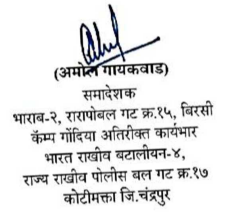 (अमोल गायकवाड)
समादेशक
भाराब-२, रारापोबल गट क्र.१५, बिरसी
कॅम्प गोंदिया अतिरीक्त कार्यभार
भारत राखीव बटालीयन-४,
राज्य राखीव पोलीस बल गट क्र.१७
कोटीमक्ता जि.चंद्रपुर